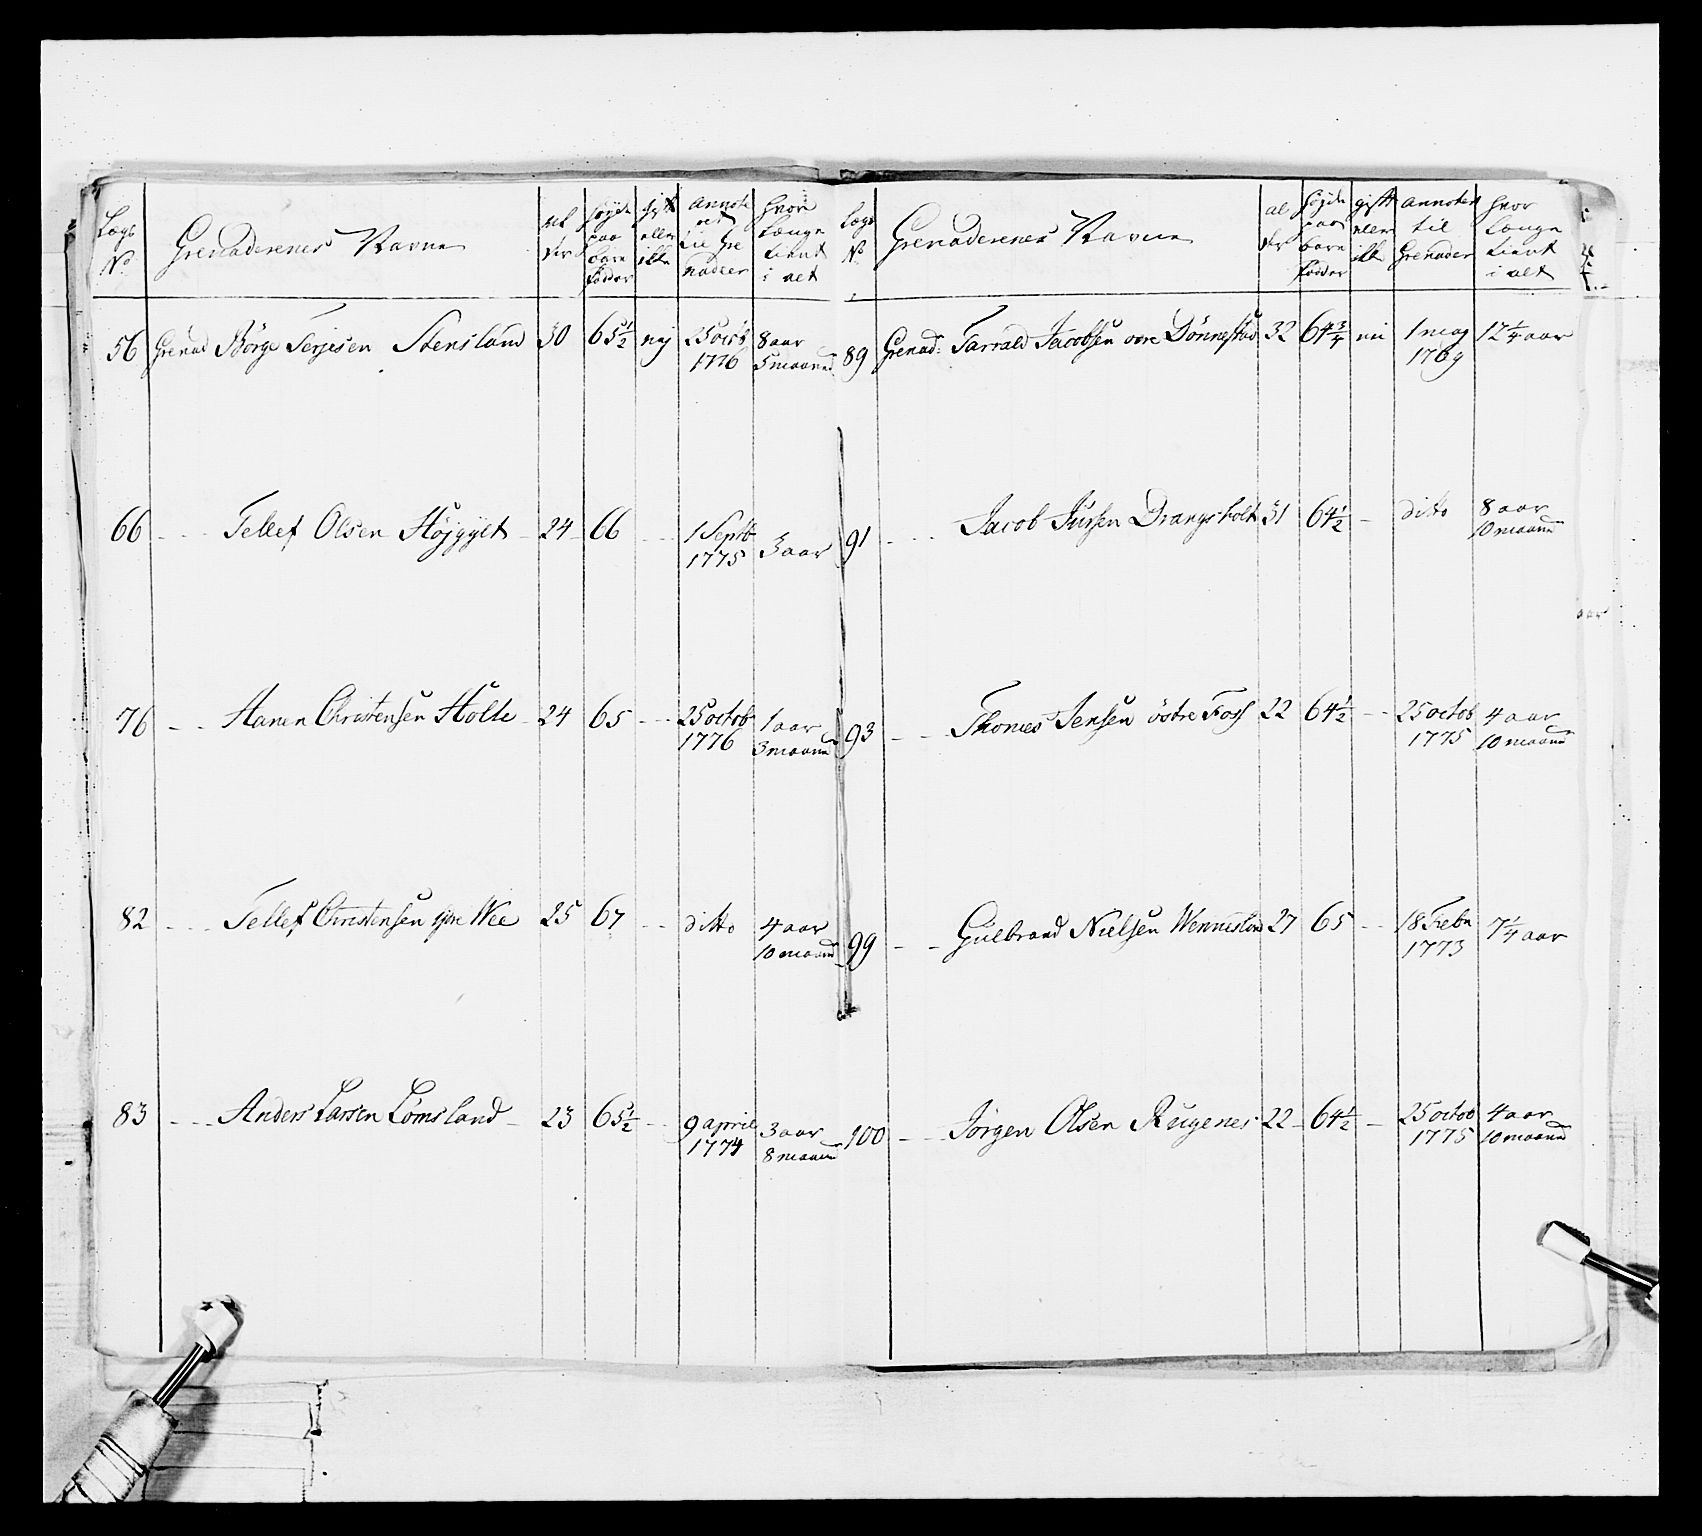 Lægs No Grenaderenes Navne al der høyde paa bare fødder gift eller ikke annote ret til Gre nadeer hvor længe tient i alt
56 Grenad Börge Terjesen Stensland 30 65 1/2 nej 25 octb 1776 8 aar 5 maaned
66 - - - Tellef Olsen Højgylt - 24 66 - - 1 Septb 1775 3 aar
76 - - - Hanen Christensen Holte - 24 65 - - - 25 octob 1776 1 aar 3 maaned
82 - - - Tellef Christensen Wee 25 67 - - ditto 4 aar 10 maaned
83 - - - Anders Larsen Lomsland - 23 65 1/2 - - 9 april 1774 3 aar 8 maaned
Lægs No Grenaderenes Navne al der høyde paa bare fødder gift eller ikke annoteret til Grenader hvor længe tient i alt
89 Grenad: Tarrald Jacobsen øvre Dönnestad 32 64 3/4 nei 1 maj 1769 12 1/4 aar
91 - - - Jacob Jursen Drangsholt 31 64 1/2 - ditto 8 aar 10 maaned
93 - - - Thomes Jensen östre Foss 22 64 1/2 - - 25 octob 1775 4 aar 10 maaned
99 - - Gulbrand Nielsen Wenneslan 27 65 - - 18 Febr 1773 7 1/4 aar
100 - - - Jörgen Olsen Rugenes 22 - 64 1/2 - 25 octob 1775 4 aar 10 maaned
aar